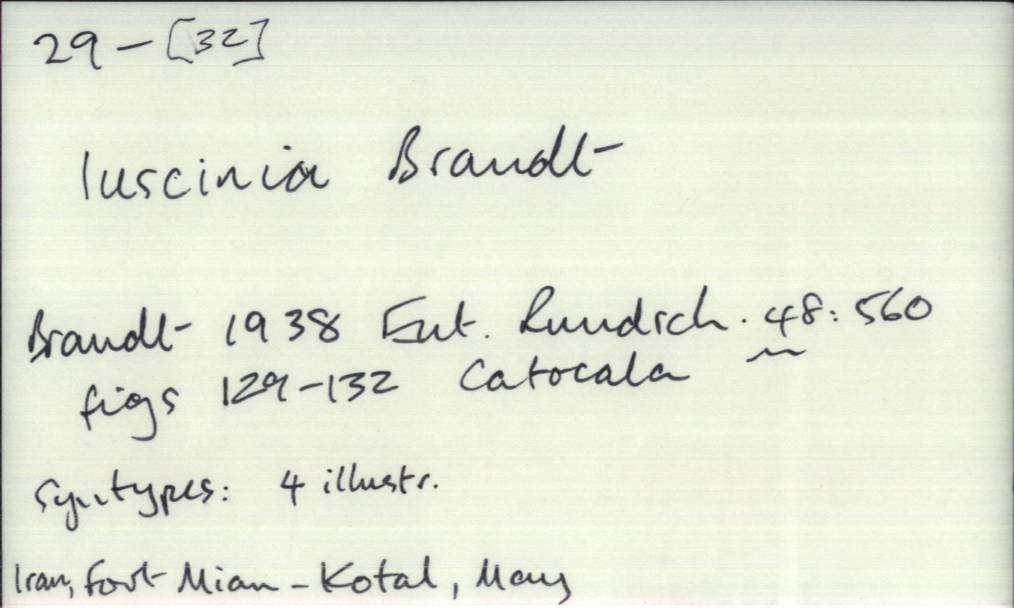 29 - [32]
luscinia Brandt
Brandt 1938 Ent. Rundsch. 48: 560
figs 129-132 Catocala
Syntypes: 4 illustr.
Iran, Fort Mian - Kotal, May